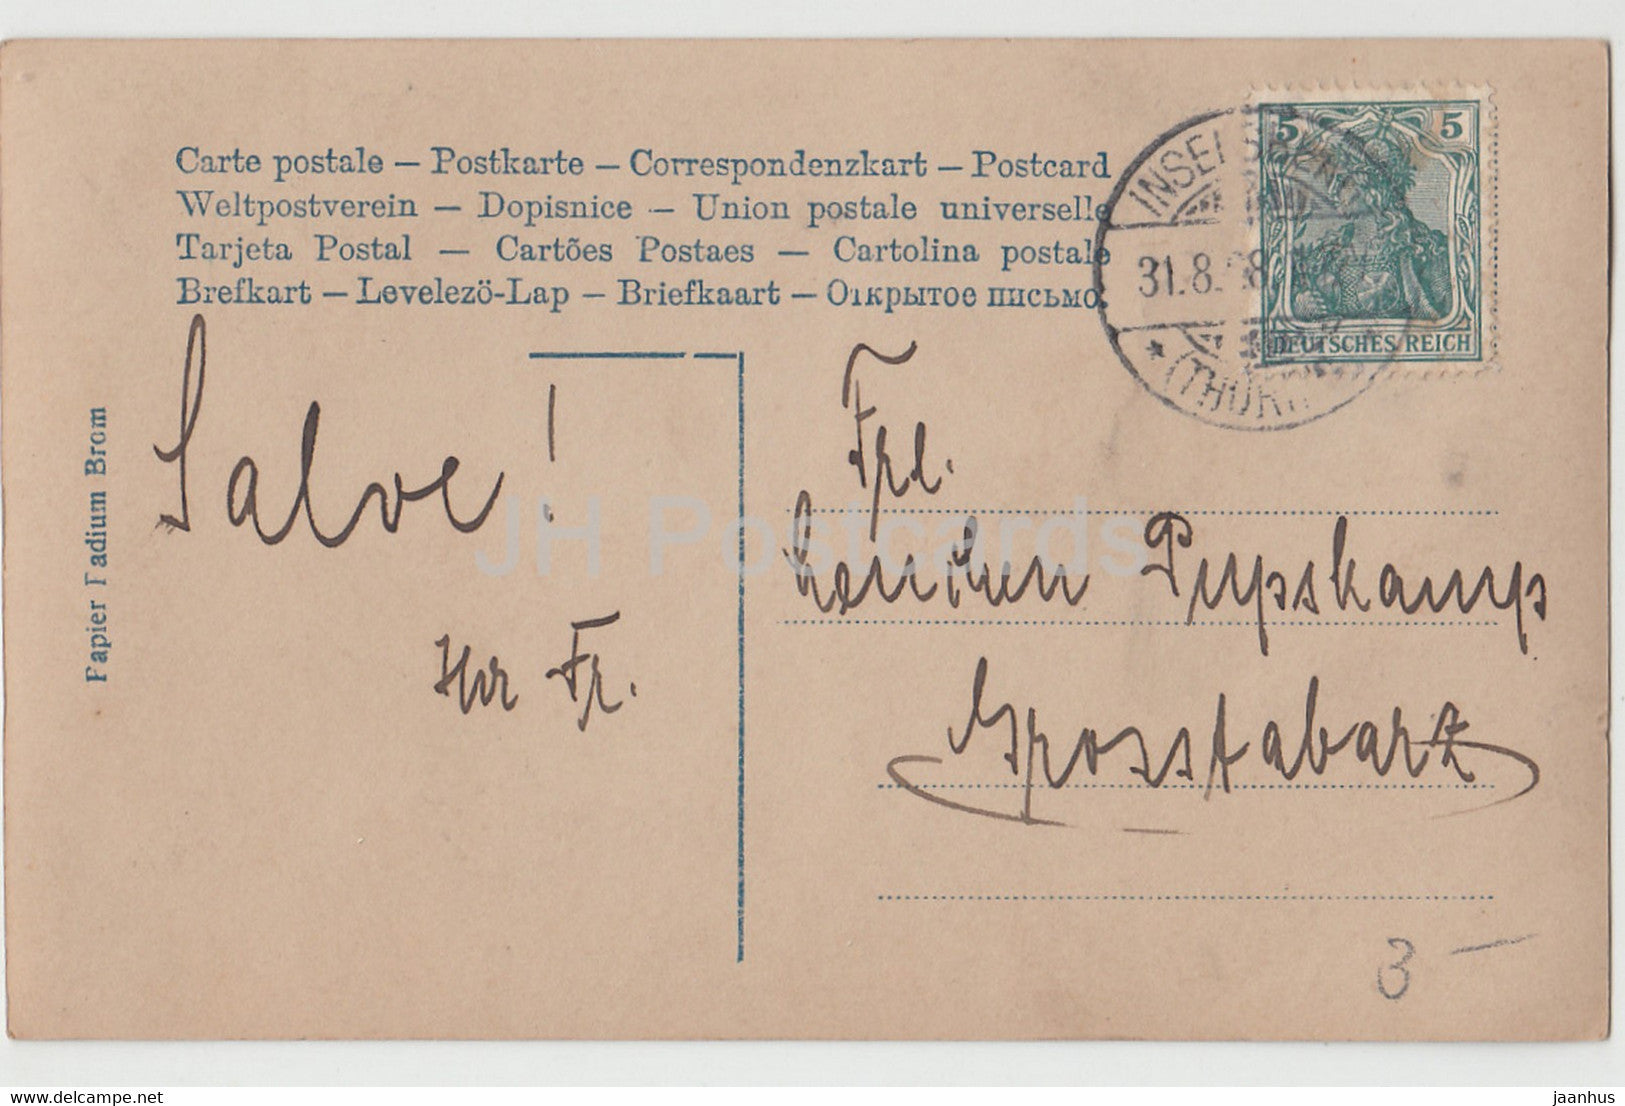 Carte postale – Postkarte – Correspondenzkart – Postcard
Weltpostverein – Dopisnice – Union postale universelle
Tarjeta Postal – Cartões Postaes – Cartolina postale
Brefkart – Levelezö-Lap – Briefkaart – Открытое письмо.
5 5
DEUTSCHES REICH
INSELSBERG
31.8. 8
* (THÜR
Papier Radium Brom
Salve!
Ihr Fr.
Frl.
Pupskamp
Grosstabarz
3 –
JH Postcards
delcampe.net
jaanhus